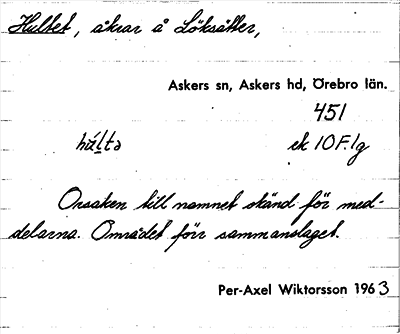 Hultet, åkrar å Löksätter,
Askers sn, Askers hd, Örebro län.
451
hul̯tə ek 10F1g
Orsaken till namnet okänd för med-
delarna. Området förr sammanslaget.
Per-Axel Wiktorsson 1963